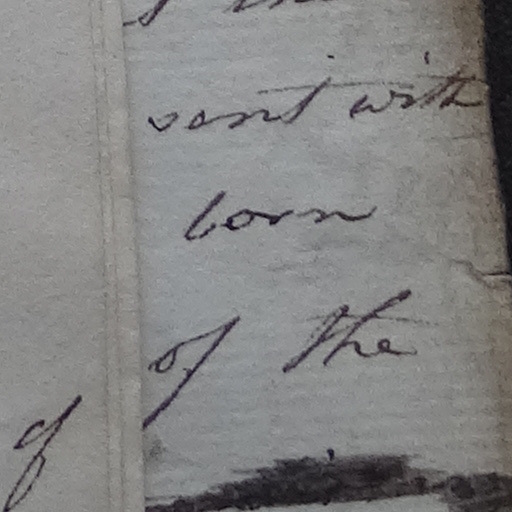 sent with
born
of the
of